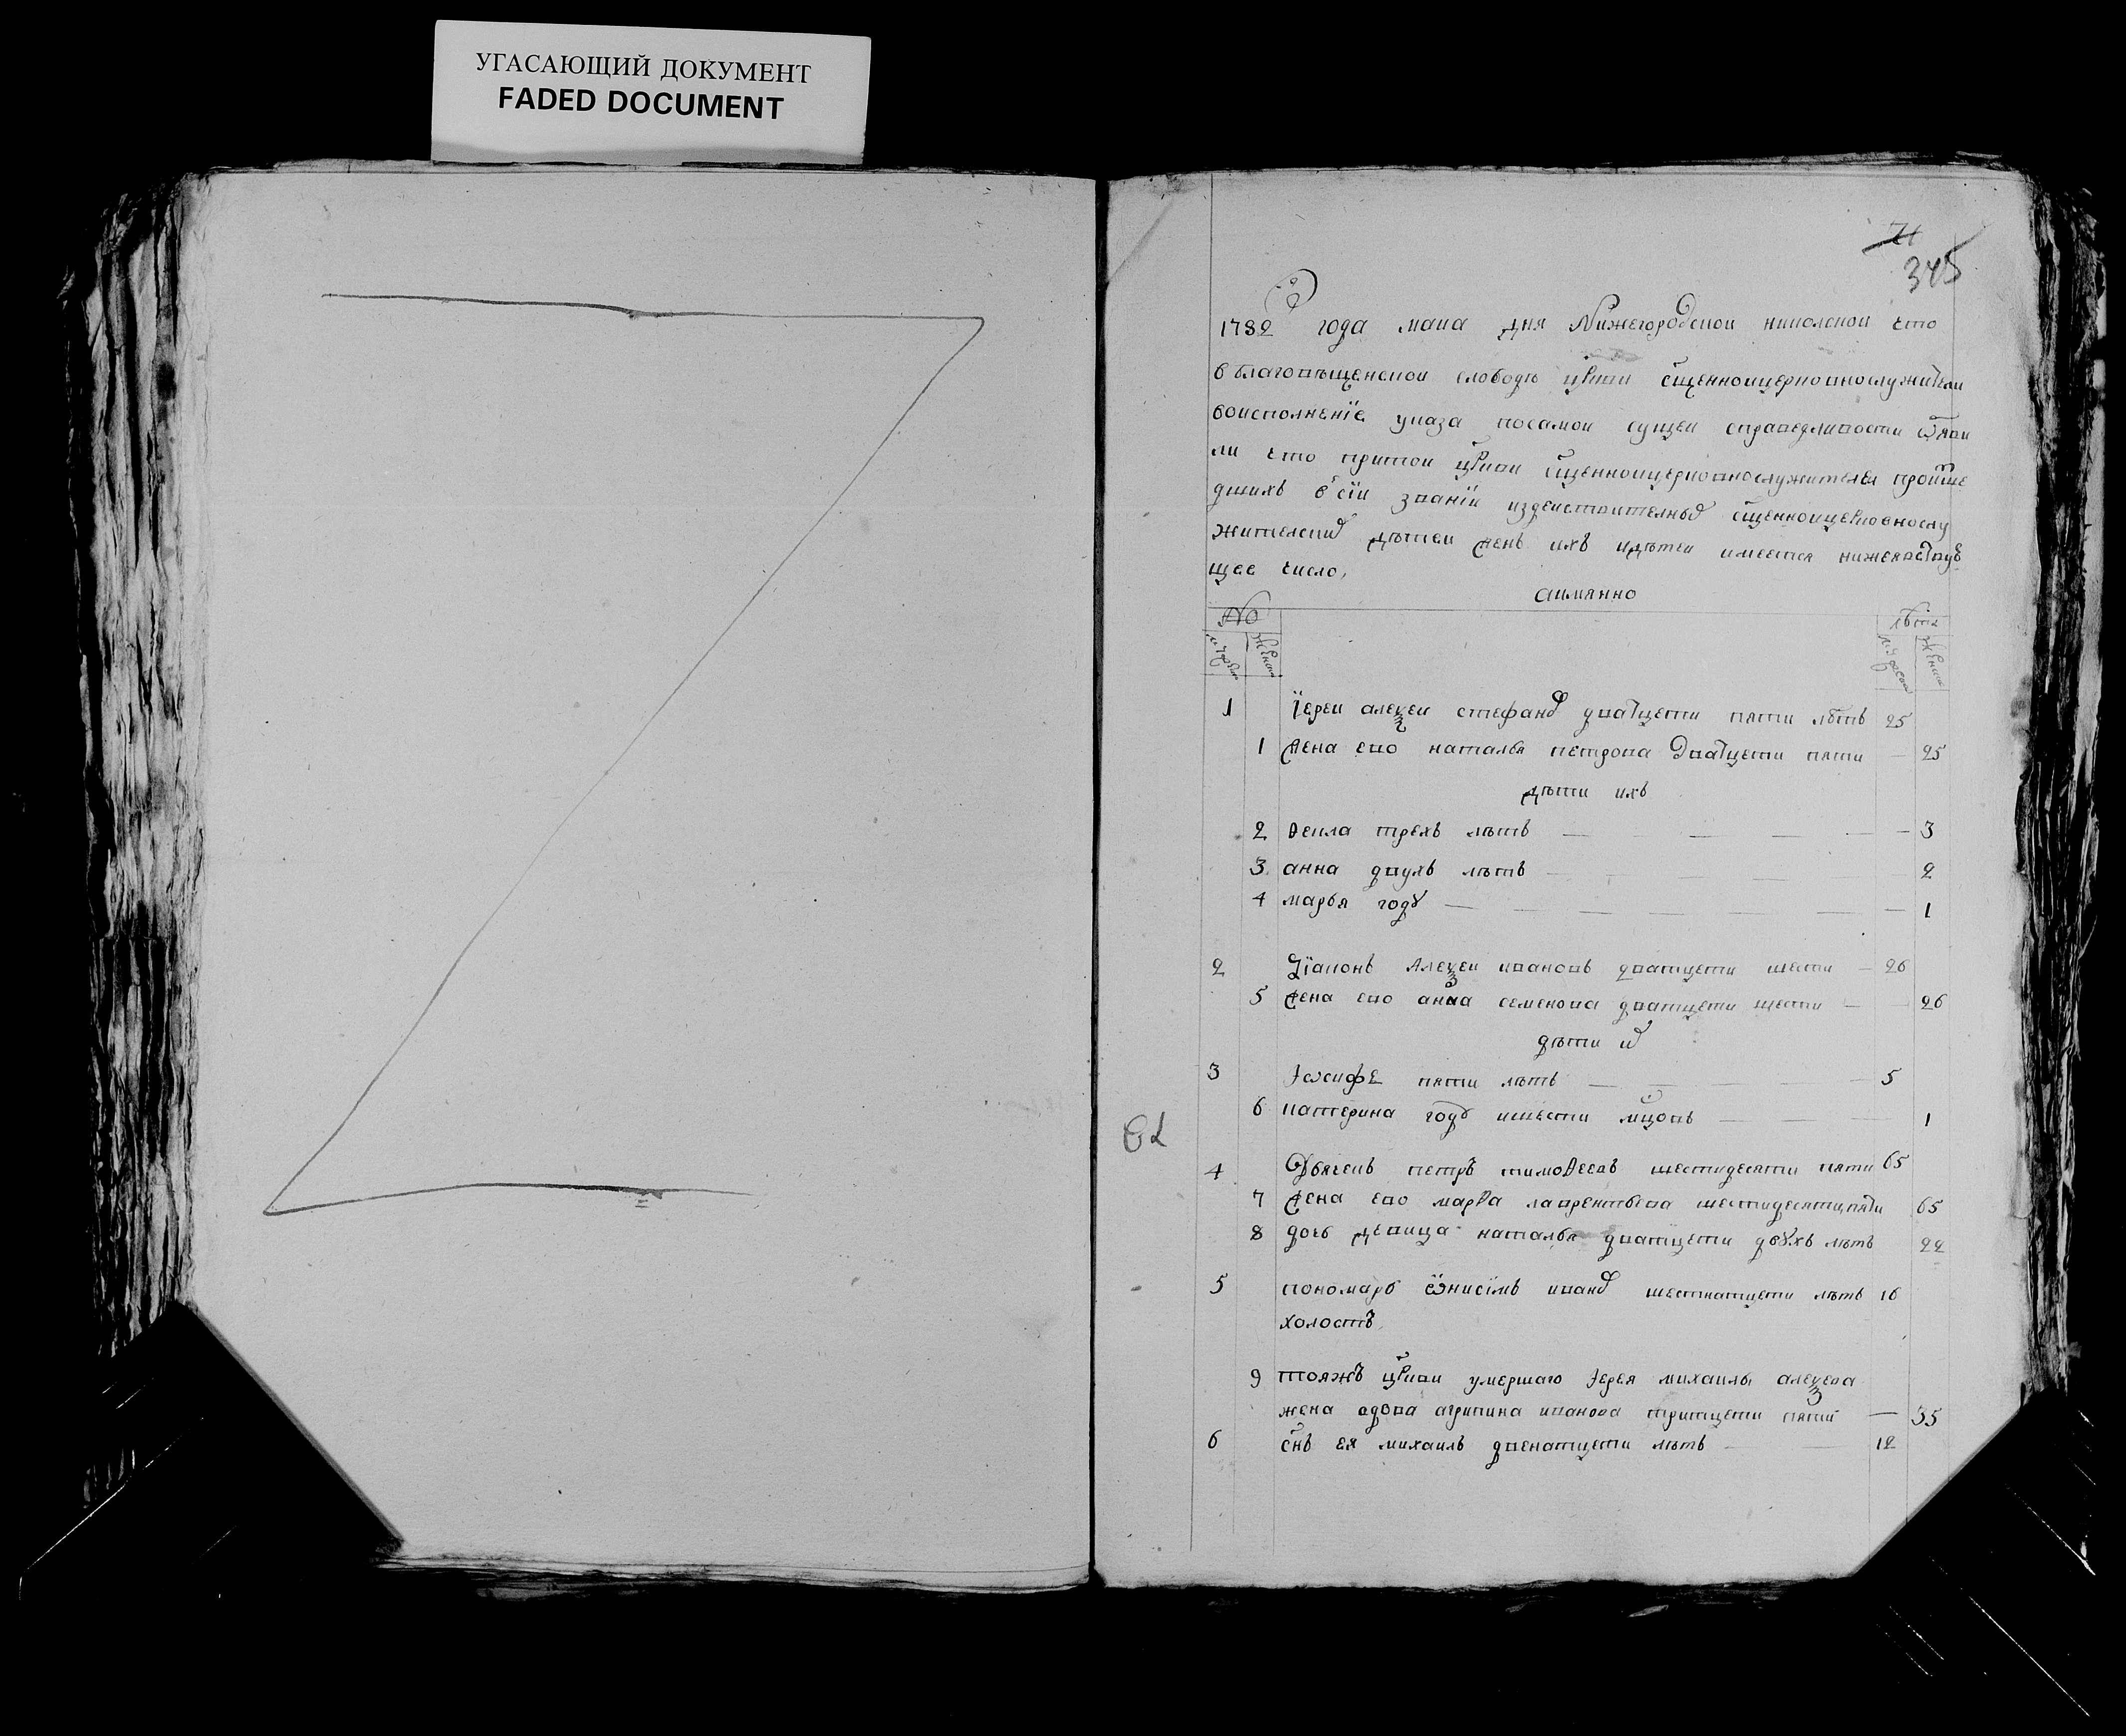 УГАСАЮЩИЙ ДОКУМЕНТ
FADED DOCUMENT
71
345
1782 года маиа дня Нижегородскои николскои что
в благовѣщенскои слободѣ цркви сщенноицерковнослужители
воисполненїе указа посамои сущеи справедливости ѿяви
ли что притои цркви сщенноицерковнослужителеи проише
дшихъ в сїи званїи издеиствителных сщенноицерковнослу
жителских дѣтеи женъ ихъ идѣтеи имеется нижеявствую
щее число,
аимянно
No лѣта
мужеска женска мужеска женска
1 Їереи алеѯеи стефанов дватцети пяти лѣтъ 25
1 Жена ево наталья петрова дватцети пяти 25
дѣти ихъ
2 ѳекла трехъ лѣтъ 3
3 анна двухъ лѣтъ 2
4 марья году 1
2 Дїаконъ Алеѯеи ивановъ дватцети шести 26
5 Жена ево анна семенова дватцети шести 26
дѣти их
3 Іѡсифе пяти лѣтъ 5
6 катерина году ишести мцовъ 1
4 Дьячекъ петръ тимоѳеевъ шестидесяти пяти 65
7 Жена ево марѳа лаврентьева шестидесятипяти 65
8 дочь девица наталья дватцети двухъ лѣтъ 22
5 пономарь ѡнисїмъ иванов шестнатцети лѣтъ 16
холостъ
9 тояжъ цркви умершаго Іерея михаилы алеѯева
жена вдова агрипина иванова тритцети пяти 35
6 снъ ея михаилъ двенатцети лѣтъ 12